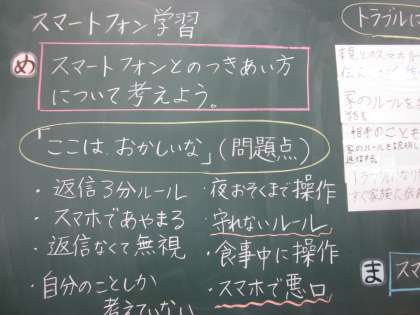 スマートフォン学習
め
スマートフォンとのつきあい方
について考えよう。
「ここは、おかしいな」(問題点)
・返信3分ルール
・スマホであやまる
・返信なくて無視
・自分のことしか
考えていない
・夜おそくまで操作
・守れないルール
・食事中に操作
・スマホで悪口
トラブルに
家のルールを
相手のことを
家のルールを説明し
トラブルになり
すぐ家族に
ま
スマ